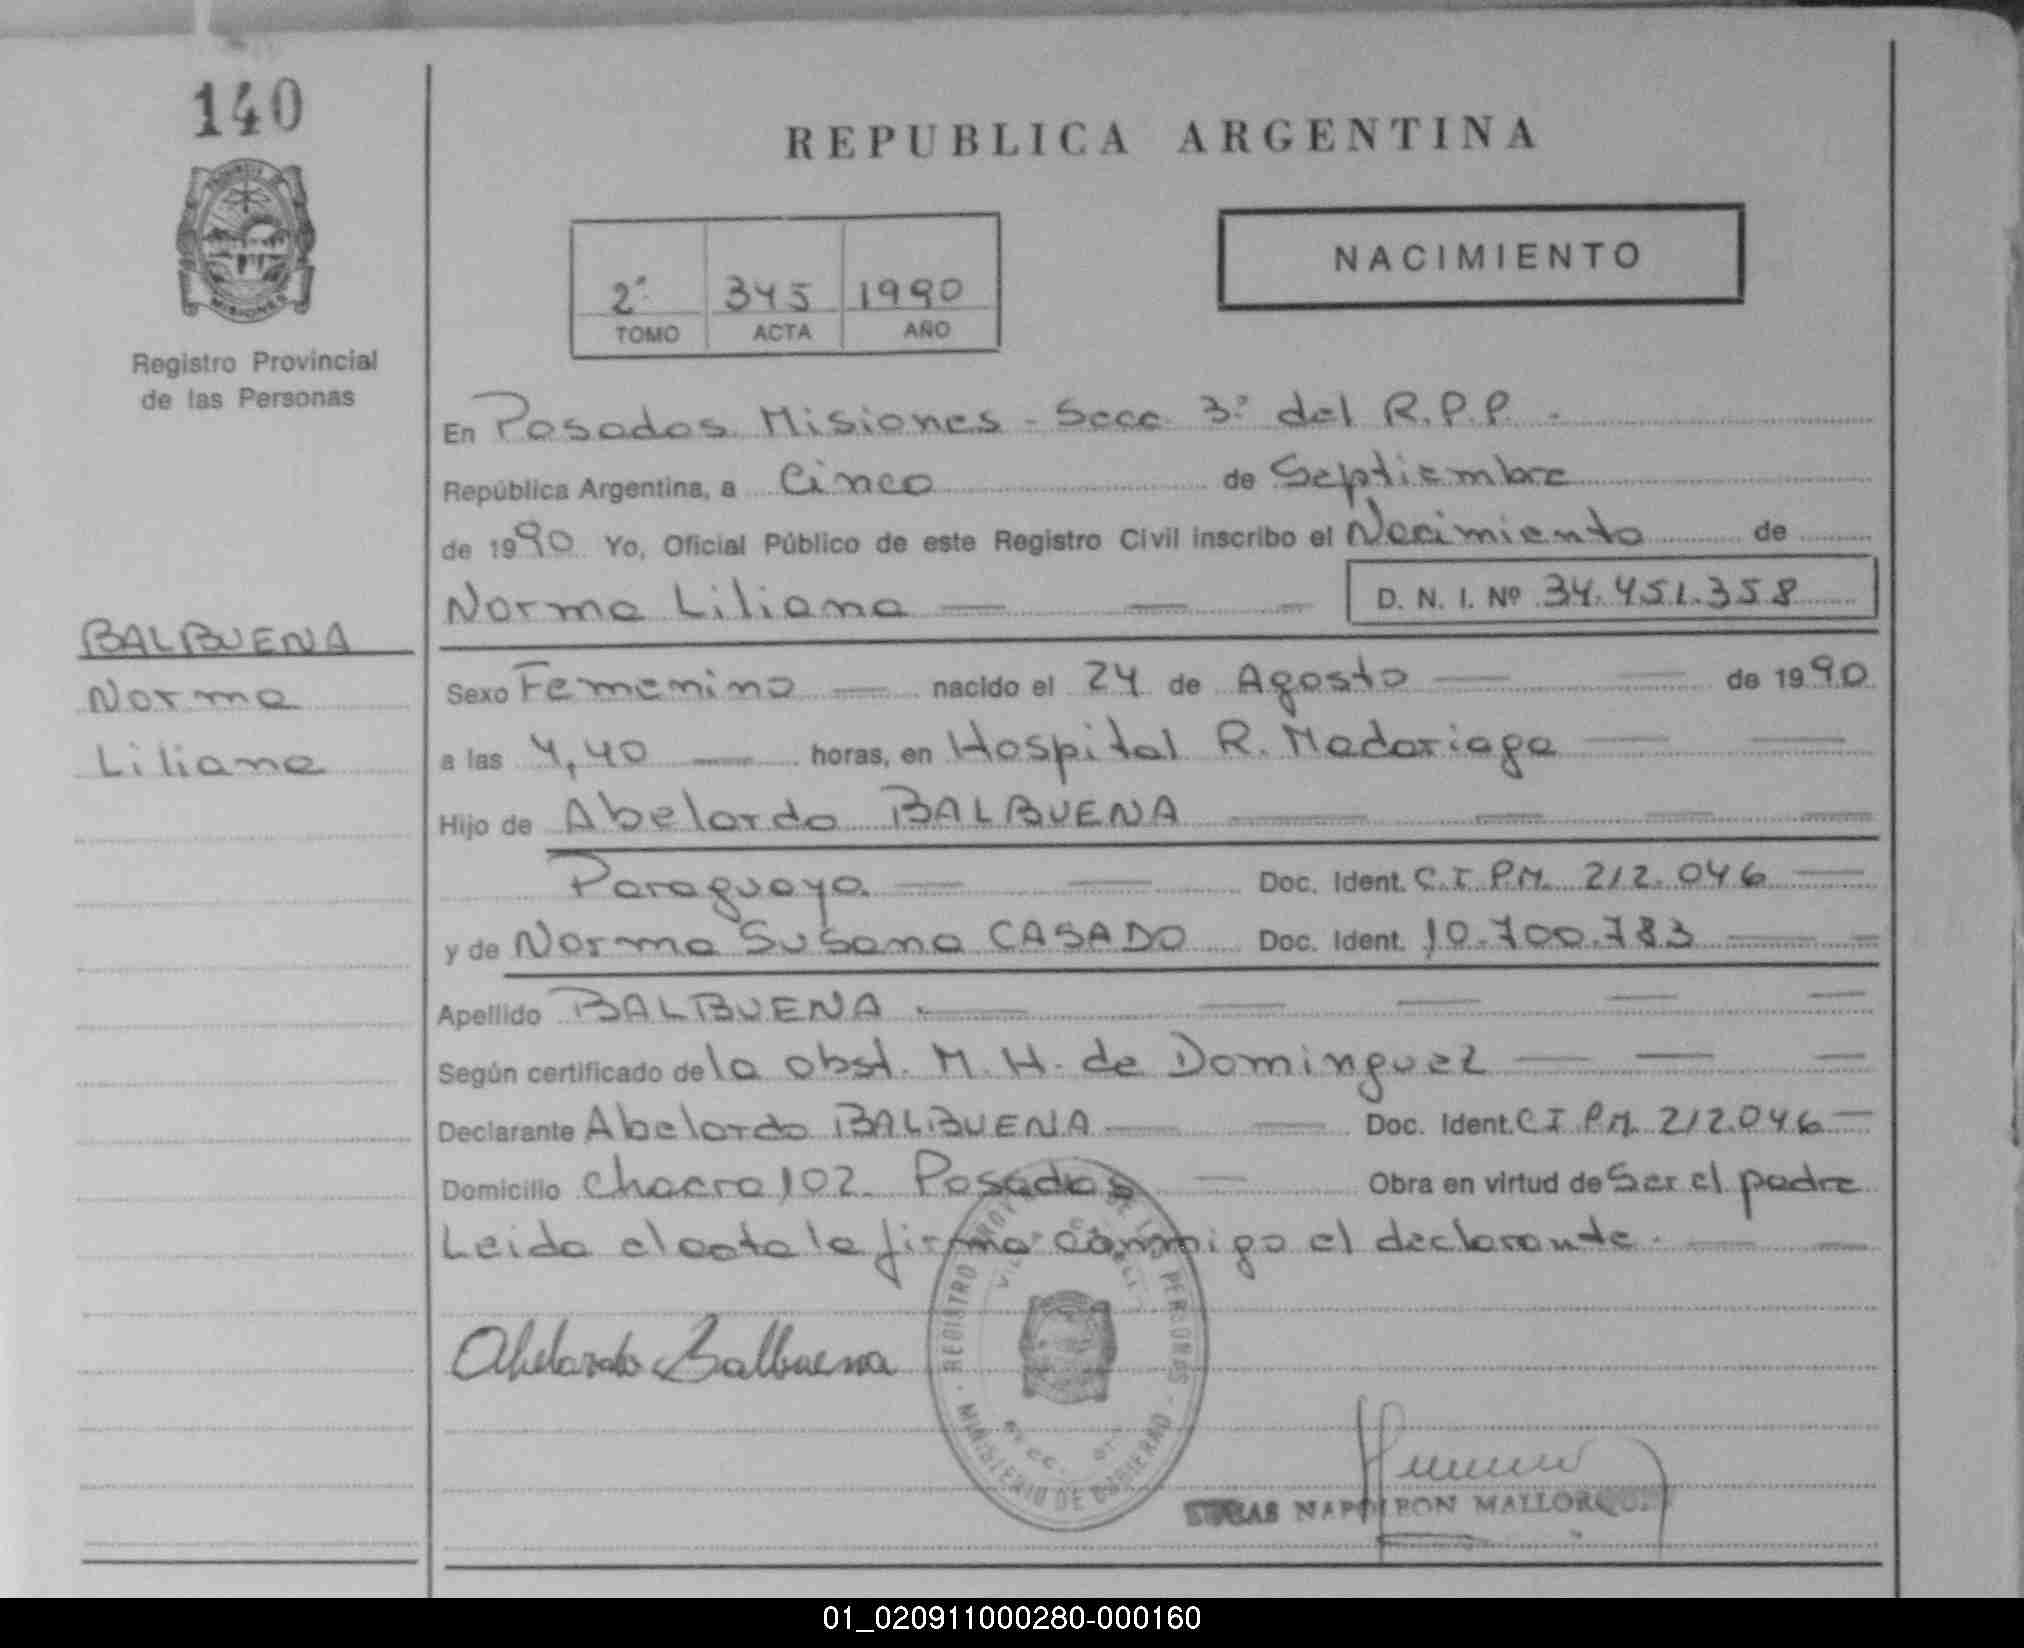 140
REPUBLICA ARGENTINA
NACIMIENTO
2º 345 1990
TOMO ACTA AÑO
MISIONES
Registro Provincial
de las Personas
En Posadas Misiones - Secc. 3º del R.P.P. -
República Argentina, a Cinco de Septiembre
de 1990 Yo, Oficial Público de este Registro Civil inscribo el Nacimiento de
Norma Liliana D. N. I. Nº 34.451.358
BALBUENA
Norma
Liliana
Sexo Femenino nacido el 24 de Agosto de 1990
a las 4,40 horas, en Hospital R. Madariaga
Hijo de Abelardo BALBUENA
Paraguaya Doc. Ident. C.I. P.M. 212.046
y de Norma Susana CASADO Doc. Ident. 10.700.783
Apellido BALBUENA
Según certificado de la obst. M. H. de Dominguez
Declarante Abelardo BALBUENA Doc. Ident. C I P.M. 212.046
Domicilio Chacra 102 Posadas Obra en virtud de Ser el padre
Leida el acta la firma conmigo el declarante.
Abelardo Balbuena
REGISTRO DE LAS PERSONAS
MINISTERIO DE GOBIERNO
NAPOLEON
01_020911000280-000160